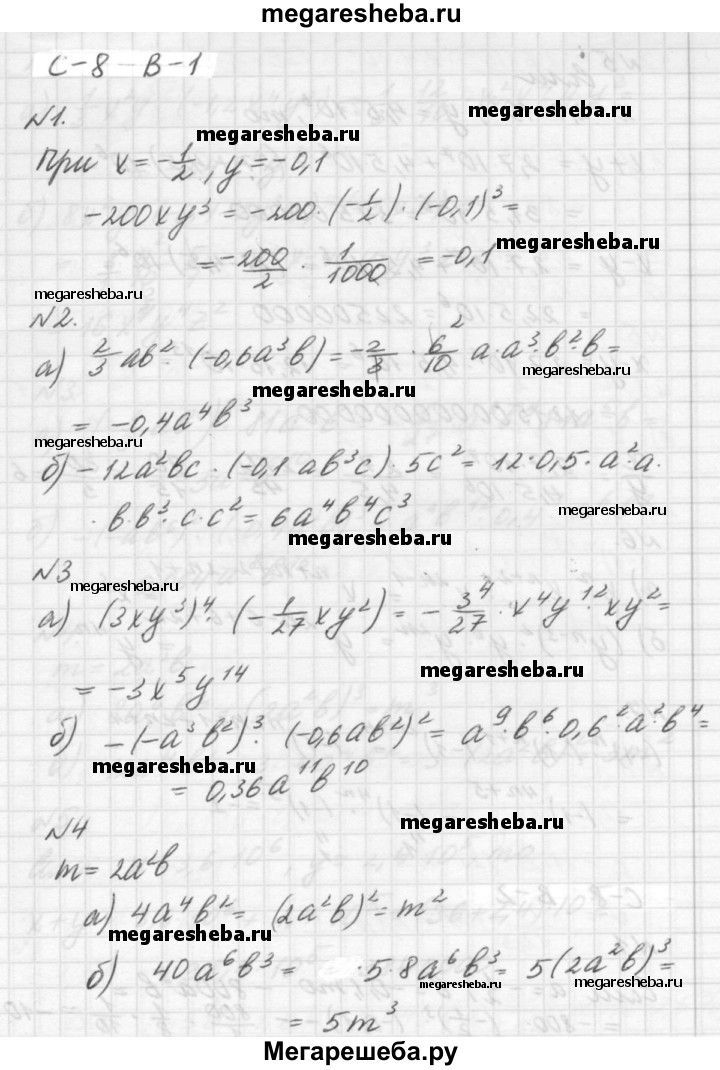 megaresheba.ru
С-8-В-1
№1.
megaresheba.ru
megaresheba.ru
При x = -1/2, y = -0,1
-200xy³ = -200·(-1/2)·(-0,1)³ =
megaresheba.ru
= -200/2 · 1/1000 = -0,1
megaresheba.ru
№2.
а) 2/3 ab²·(-0,6a³b) = -2/3 · 6/10 ² a·a³·b²·b =
megaresheba.ru
megaresheba.ru
= -0,4a⁴b³
megaresheba.ru
б) -12a²bc·(-0,1ab³c)·5c² = 12·0,5·a²·a·
megaresheba.ru
·b·b³·c·c² = 6a⁴b⁴c³
megaresheba.ru
№3
megaresheba.ru
а) (3xy³)⁴·(-1/27 xy²) = -3⁴/27 · x⁴y¹²·xy² =
megaresheba.ru
= -3x⁵y¹⁴
б) -(-a³b²)³·(-0,6ab²)² = a⁹·b⁶·0,6²a²·b⁴ =
megaresheba.ru
= 0,36a¹¹b¹⁰
megaresheba.ru
№4
m = 2a²b
а) 4a⁴b² = (2a²b)² = m²
megaresheba.ru
б) 40a⁶b³ = ·5·8a⁶b³ = 5(2a²b)³ =
megaresheba.ru
megaresheba.ru
= 5m³
Мегарешеба.ру